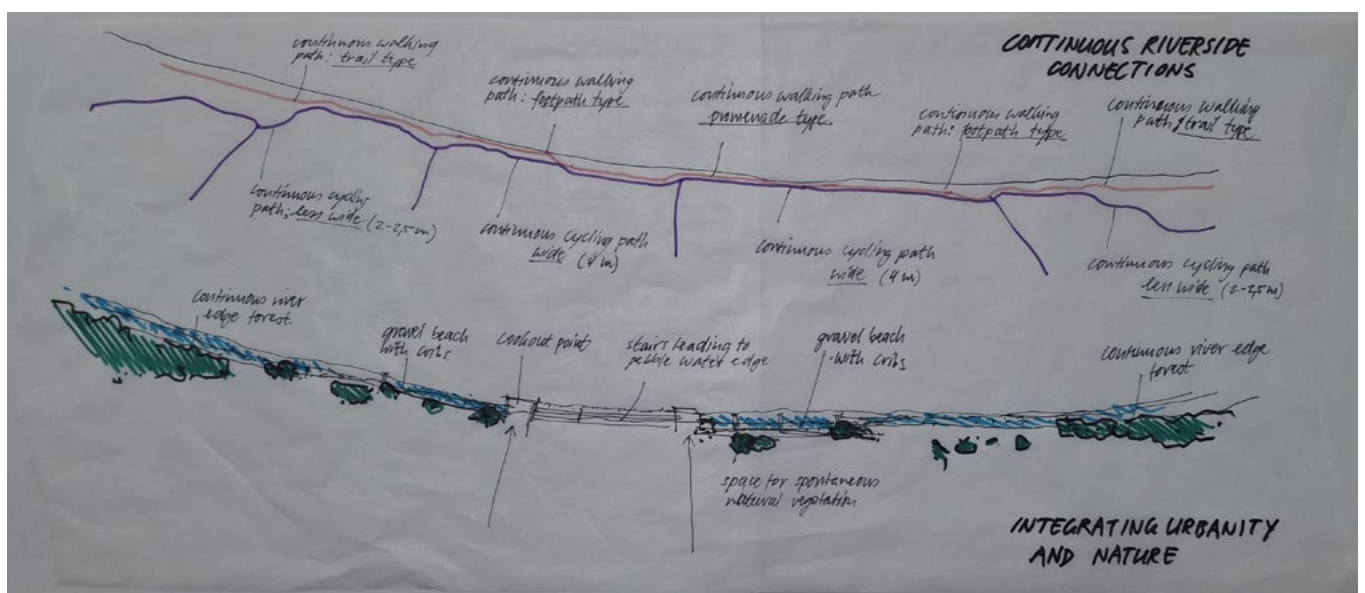 CONTINUOUS RIVERSIDE
CONNECTIONS
continuous walking
path: trail type
continuous walking
path: footpath type
continuous walking path
promenade type
continuous walking
path: footpath type
continuous walking
path: trail type
continuous cycling
path; less wide (2-2,5m)
continuous cycling path
wide (4m)
continuous cycling path
wide (4m)
continuous cycling path
less wide (2-2,5m)
continuous river
edge forest.
gravel beach
with cribs
lookout points
stairs leading to
pebble water edge
gravel beach
with cribs
continuous river edge
forest
space for spontaneous
natural vegetation
INTEGRATING URBANITY
AND NATURE